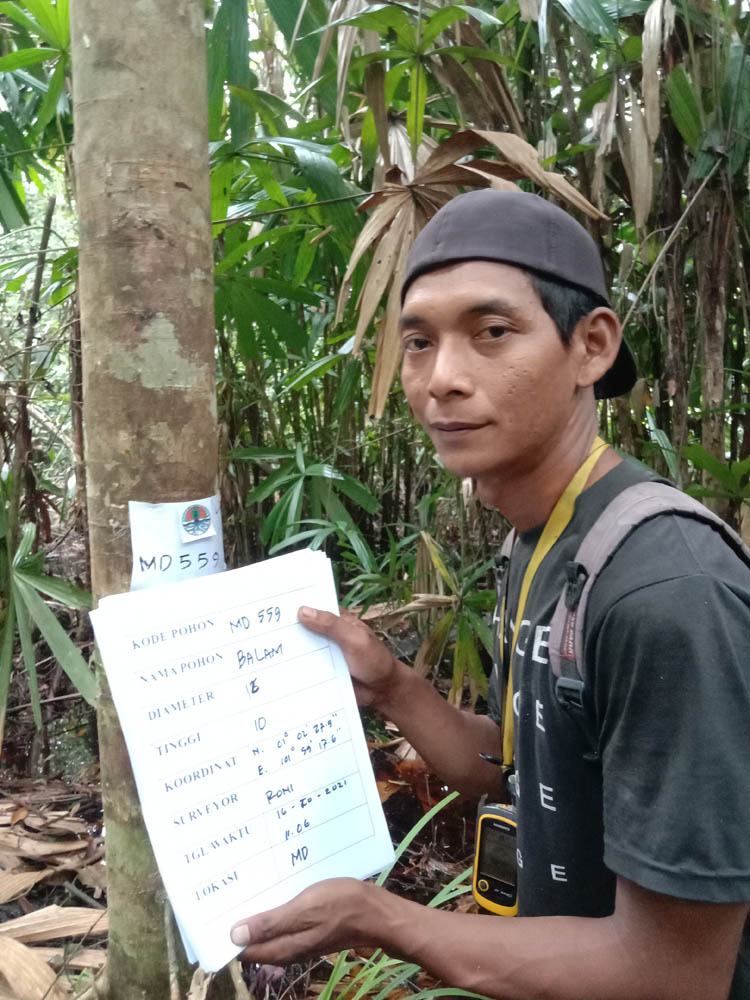 MD 559
KODE POHON MD 559
NAMA POHON BALAM
DIAMETER
TINGGI 10
KOORDINAT N. 01° 02' 27.9"
E. 101° 55' 17.6"
SURVEYOR RONI
TGL WAKTU 16-10-2021
11.06
LOKASI MD